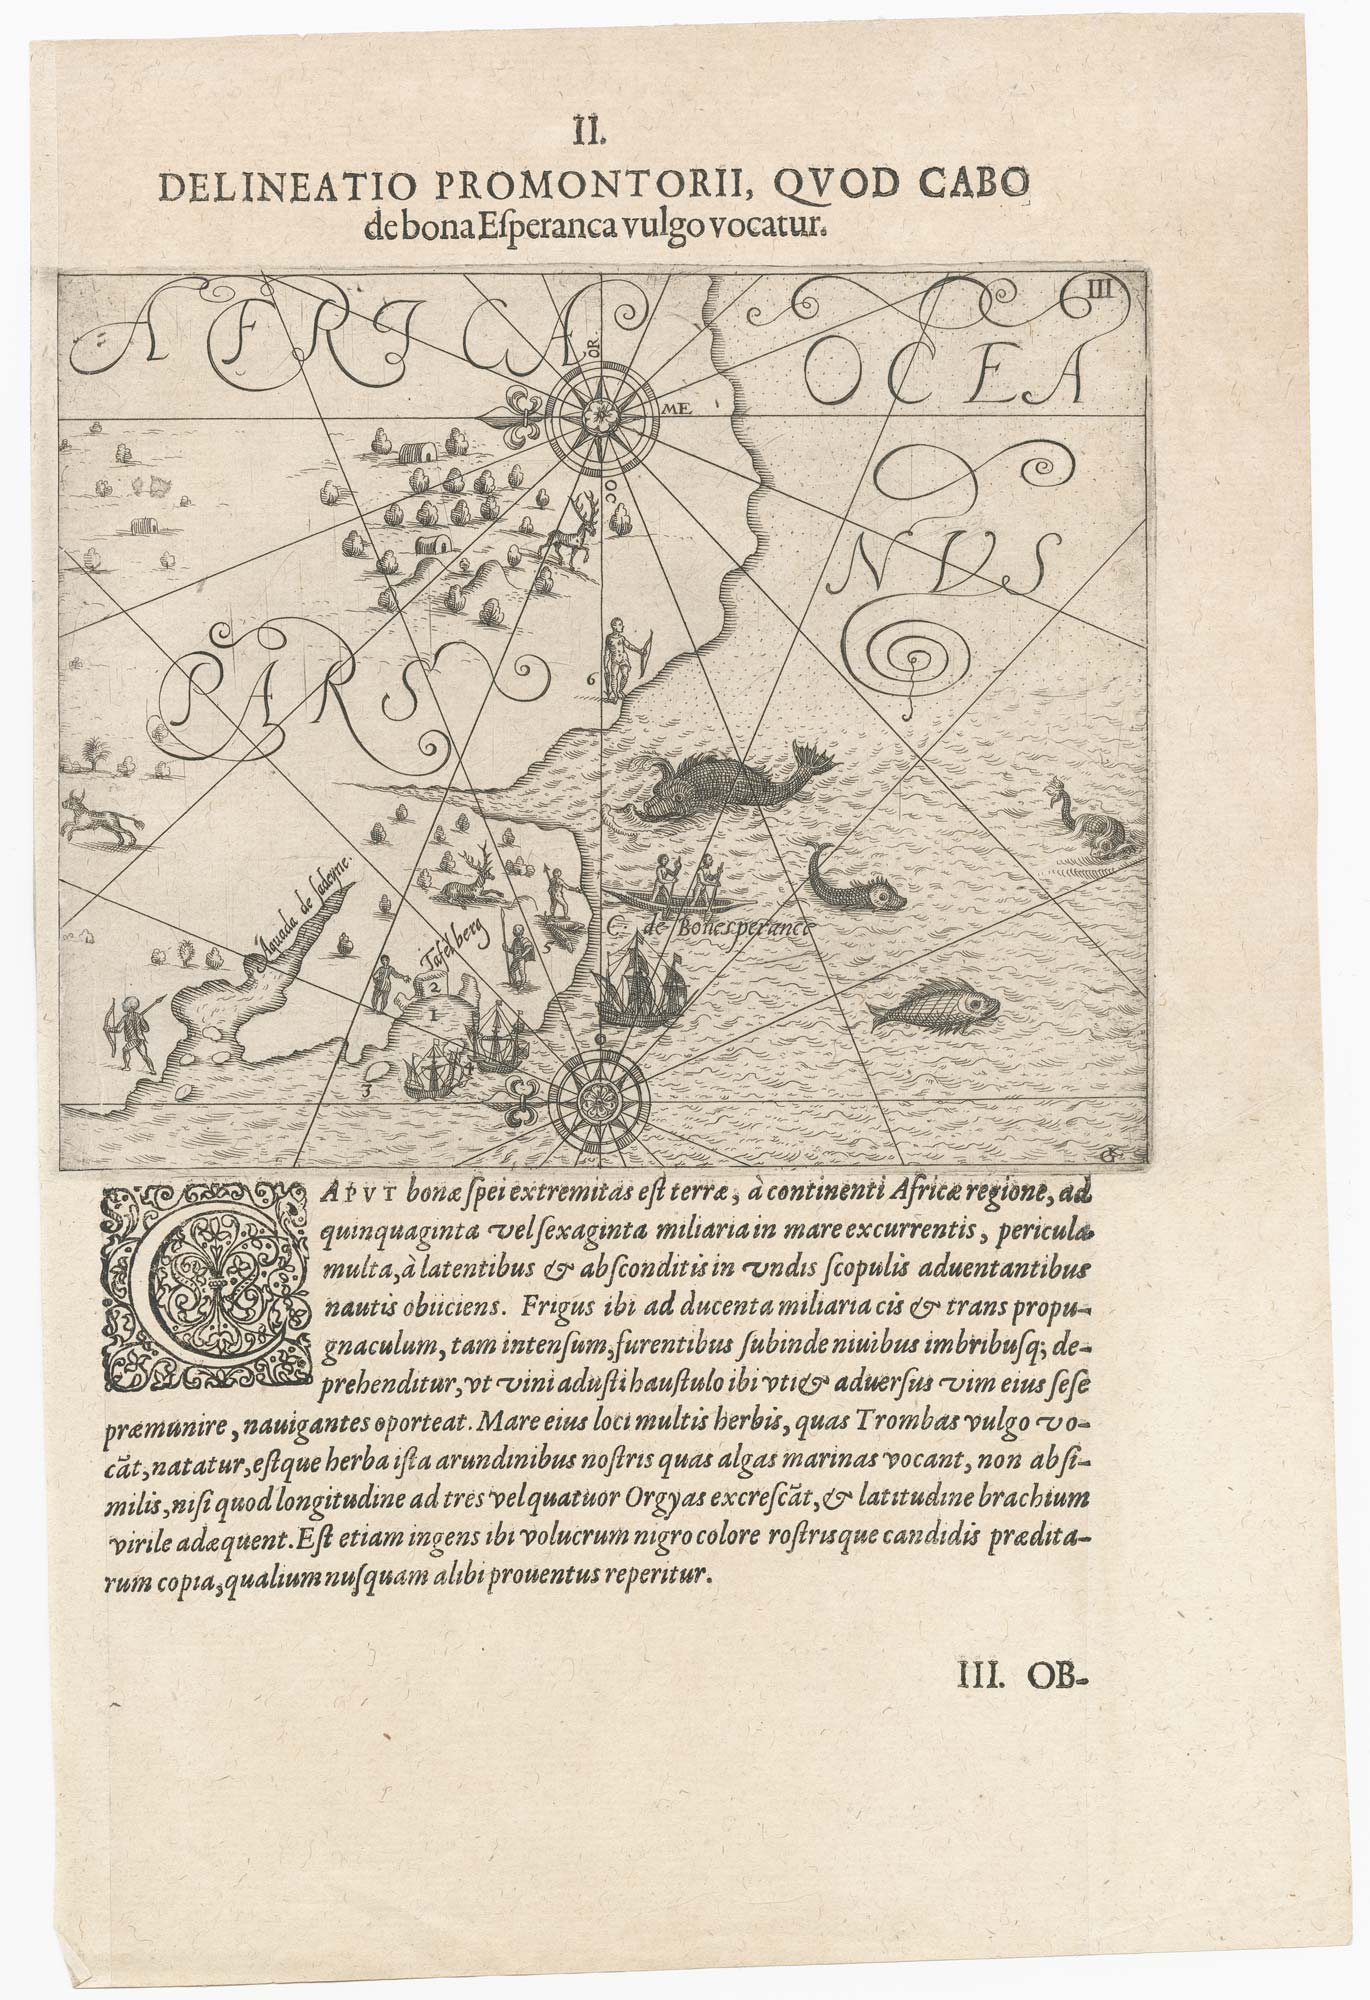 II.
DELINEATIO PROMONTORII, QVOD CABO
de bona Eſperanca vulgo vocatur.
III
AFRICA
OCEA
NVS
OR.
ME
OC
PARS
6
Aguada de Saldeyne.
Tafelberg
C. de Bonesperance
5
2
1
4
3
CAPVT bonæ ſpei extremitas eſt terræ, à continenti Africæ regione, ad
quinquaginta vel ſexaginta miliaria in mare excurrentis, pericula
multa, à latentibus & abſconditis in vndis ſcopulis aduentantibus
nautis obiiciens. Frigus ibi ad ducenta miliaria cis & trans propu-
gnaculum, tam intenſum, furentibus ſubinde niuibus imbribuſq; de-
prehenditur, vt vini aduſti hauſtulo ibi vti & aduerſus vim eius ſeſe
præmunire, nauigantes oporteat. Mare eius loci multis herbis, quas Trombas vulgo vo-
cãt, natatur, eſtque herba iſta arundinibus noſtris quas algas marinas vocant, non abſi-
milis, niſi quod longitudine ad tres vel quatuor Orgyas excreſcãt, & latitudine brachium
virile adæquent. Eſt etiam ingens ibi volucrum nigro colore roſtrisque candidis prædita-
rum copia, qualium nuſquam alibi prouentus reperitur.
III. OB-